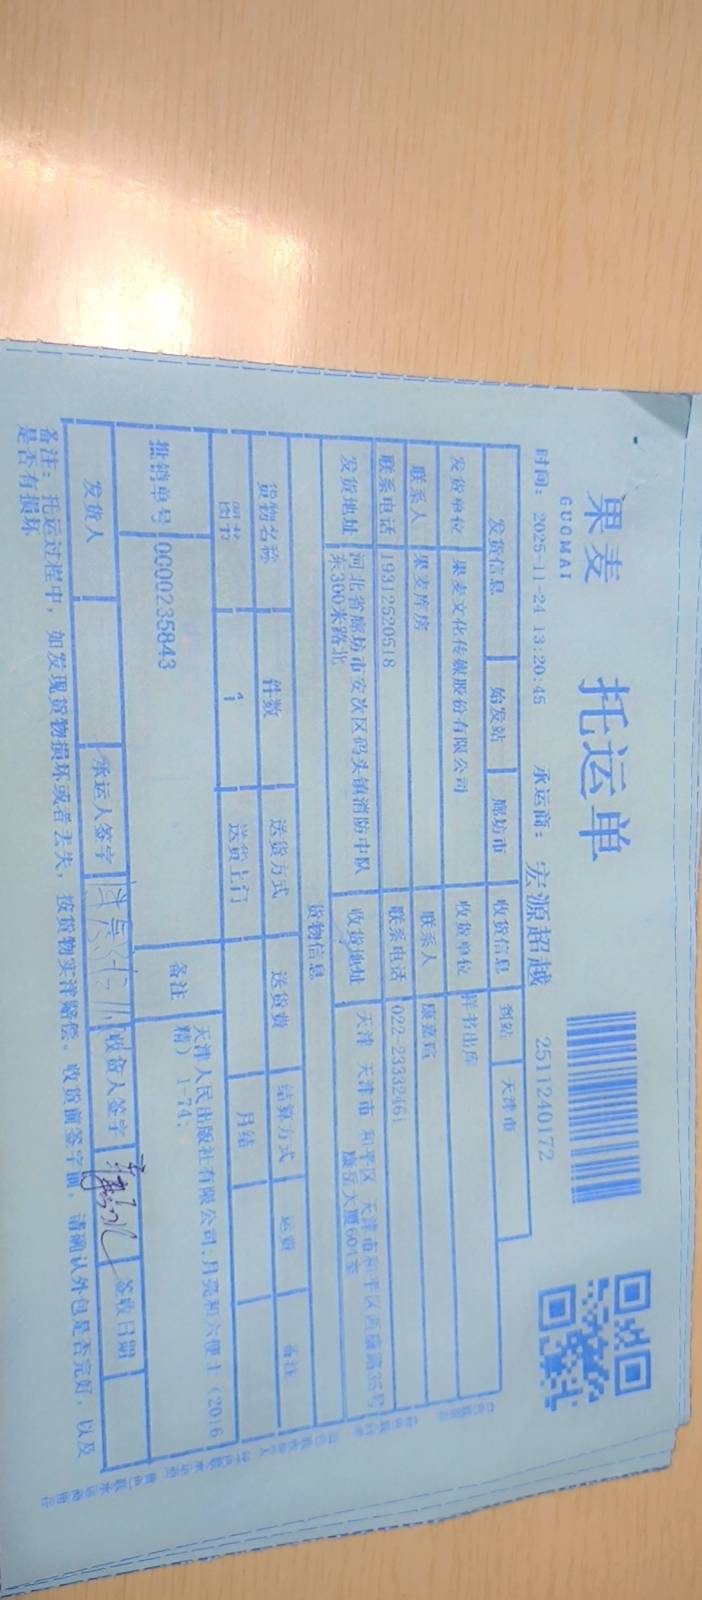 果麦
GUOMAI
托运单
时间: 2025-11-24 13:20:45 承运商: 宏源超越 2511240172
发货信息 始发站 廊坊市 收货信息 到站 天津市
发货单位 果麦文化传媒股份有限公司 收货单位 样书出库
联系人 果麦库房 联系人 康嘉瓿
联系电话 19312520518 联系电话 022-23332461
发货地址 河北省廊坊市安次区码头镇消防中队东300米路北 收货地址 天津 天津市 和平区 天津市和平区西康路35号康岳大厦604室
货物信息
货物名称 件数 送货方式 送货费 结算方式 运费 备注
图书 1 送货上门 月结
批销单号 0000235843 备注 天津人民出版社有限公司,月亮和六便士（2016精） 1-74;
发货人 承运人签字 收货人签字 签收日期
备注: 托运过程中，如发现货物损坏或者丢失，按货物实洋赔偿。收货前签字前，请确认外包是否完好，以及
是否有损坏